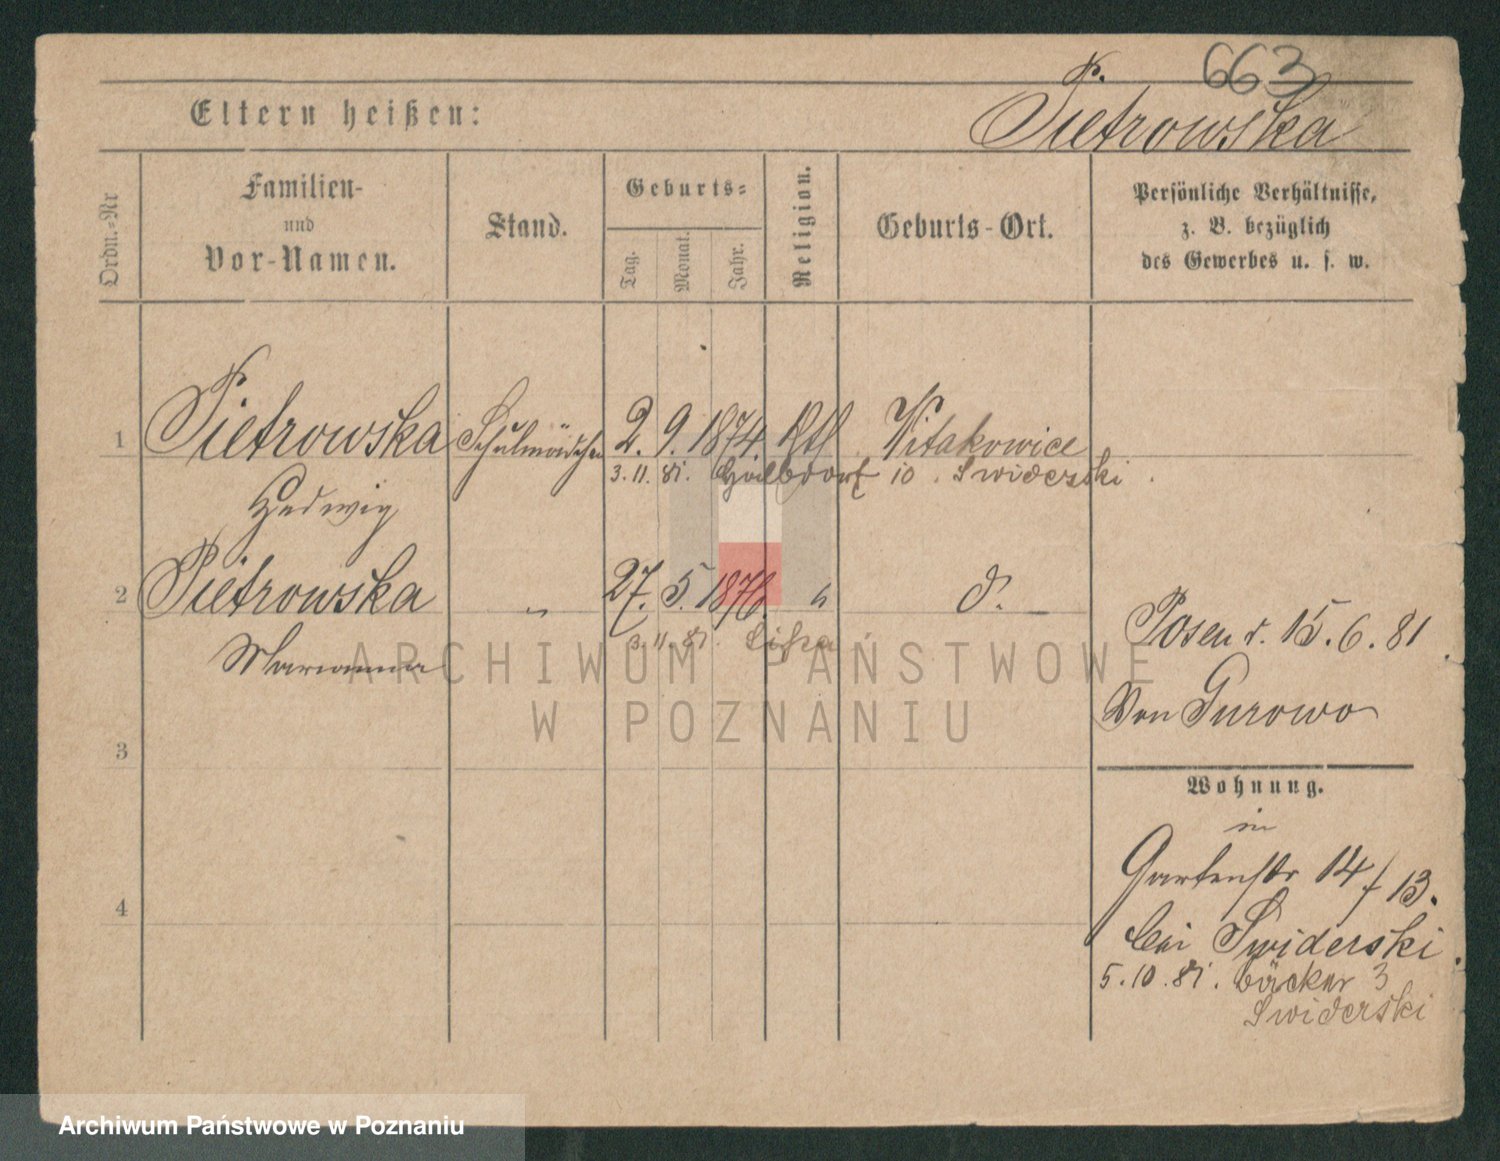 663
P.
Eltern heißen:
Pietrowska
Ordn.-Nr
Familien-
und
Vor-Namen.
Stand.
Geburts-
Tag.
Monat.
Jahr.
Religion.
Geburts-Ort.
Persönliche Verhältnisse,
z. B. bezüglich
des Gewerbes u. s. w.
1 Pietrowska Schulmädchen 2. 9. 1874. Kth Witakowice
3. 11. 81. 10. Swiderski
Hedwig
2 Pietrowska " 27. 5. 1876. " d.
Marianna
3. 11. 81.
Posen d. 15. 6. 81.
Von Gurowo
3
Wohnung.
in
Gartenstr 14/13.
4
bei Swiderski.
5. 10. 81. Bäcker 3
Swiderski
ARCHIWUM PAŃSTWOWE
W POZNANIU
Archiwum Państwowe w Poznaniu